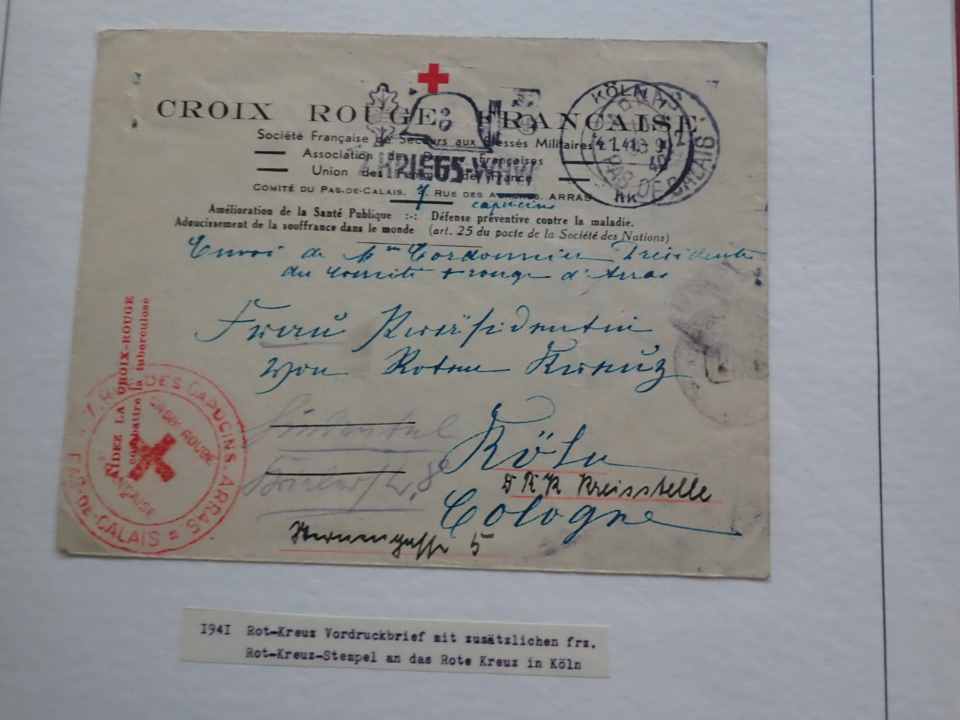 CROIX ROUGE FRANÇAISE
Société Française de Secours aux Blessés Militaires
Association des Françaises
Union des de France
KRIEGS-WHW
COMITÉ DU PAS-DE-CALAIS. 7, RUE DES ARRAS
capucins
Amélioration de la Santé Publique :-: Défense préventive contre la maladie.
Adoucissement de la souffrance dans le monde (art. 25 du pacte de la Société des Nations)
KÖLN
4.1.41
PAS-DE-CALAIS
Envoi de Mme Cordonnier Présidente
du comité + rouge d'Arras
Frau Präsidentin
von Roten Kreuz
Köln
DRK Kreisstelle
Cologne
5
AIDEZ LA CROIX-ROUGE
combattre la tuberculose
7. RUE DES CAPUCINS. ARRAS
PAS-DE-CALAIS
CROIX ROUGE
FRANÇAISE
1941 Rot-Kreuz Vordruckbrief mit zusätzlichen frz.
Rot-Kreuz-Stempel an das Rote Kreuz in Köln